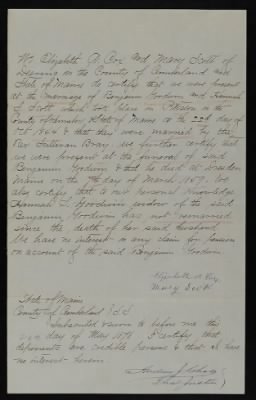 We Elizabeth A. Coe and Mary Scott of
Deering in the County of Cumberland and
State of Maine do certify that we were present
at the marriage of Benjamin Goodwin and Hannah
L Scott which took place in in the
County of State of Maine on the 22d day of
Oct 1864 & that they were married by the
Rev. Sullivan Bray, we further certify that
we were present at the funeral of said
Benjamin Goodwin & that he died at
Maine on the day of March 189 We
also certify that to our personal knowledge
Hannah L. Goodwin widow of the said
Benjamin Goodwin has not remarried
since the death of her said husband
We have no interest in any claim for pension
on account of the said Benjamin Goodwin
Elizabeth A. Coe
Mary Scott
State of Maine
County of Cumberland } S.S
Subscribed & sworn to before me this
day of May 189 & I certify that
deponents are credible persons & that I have
no interest herein.